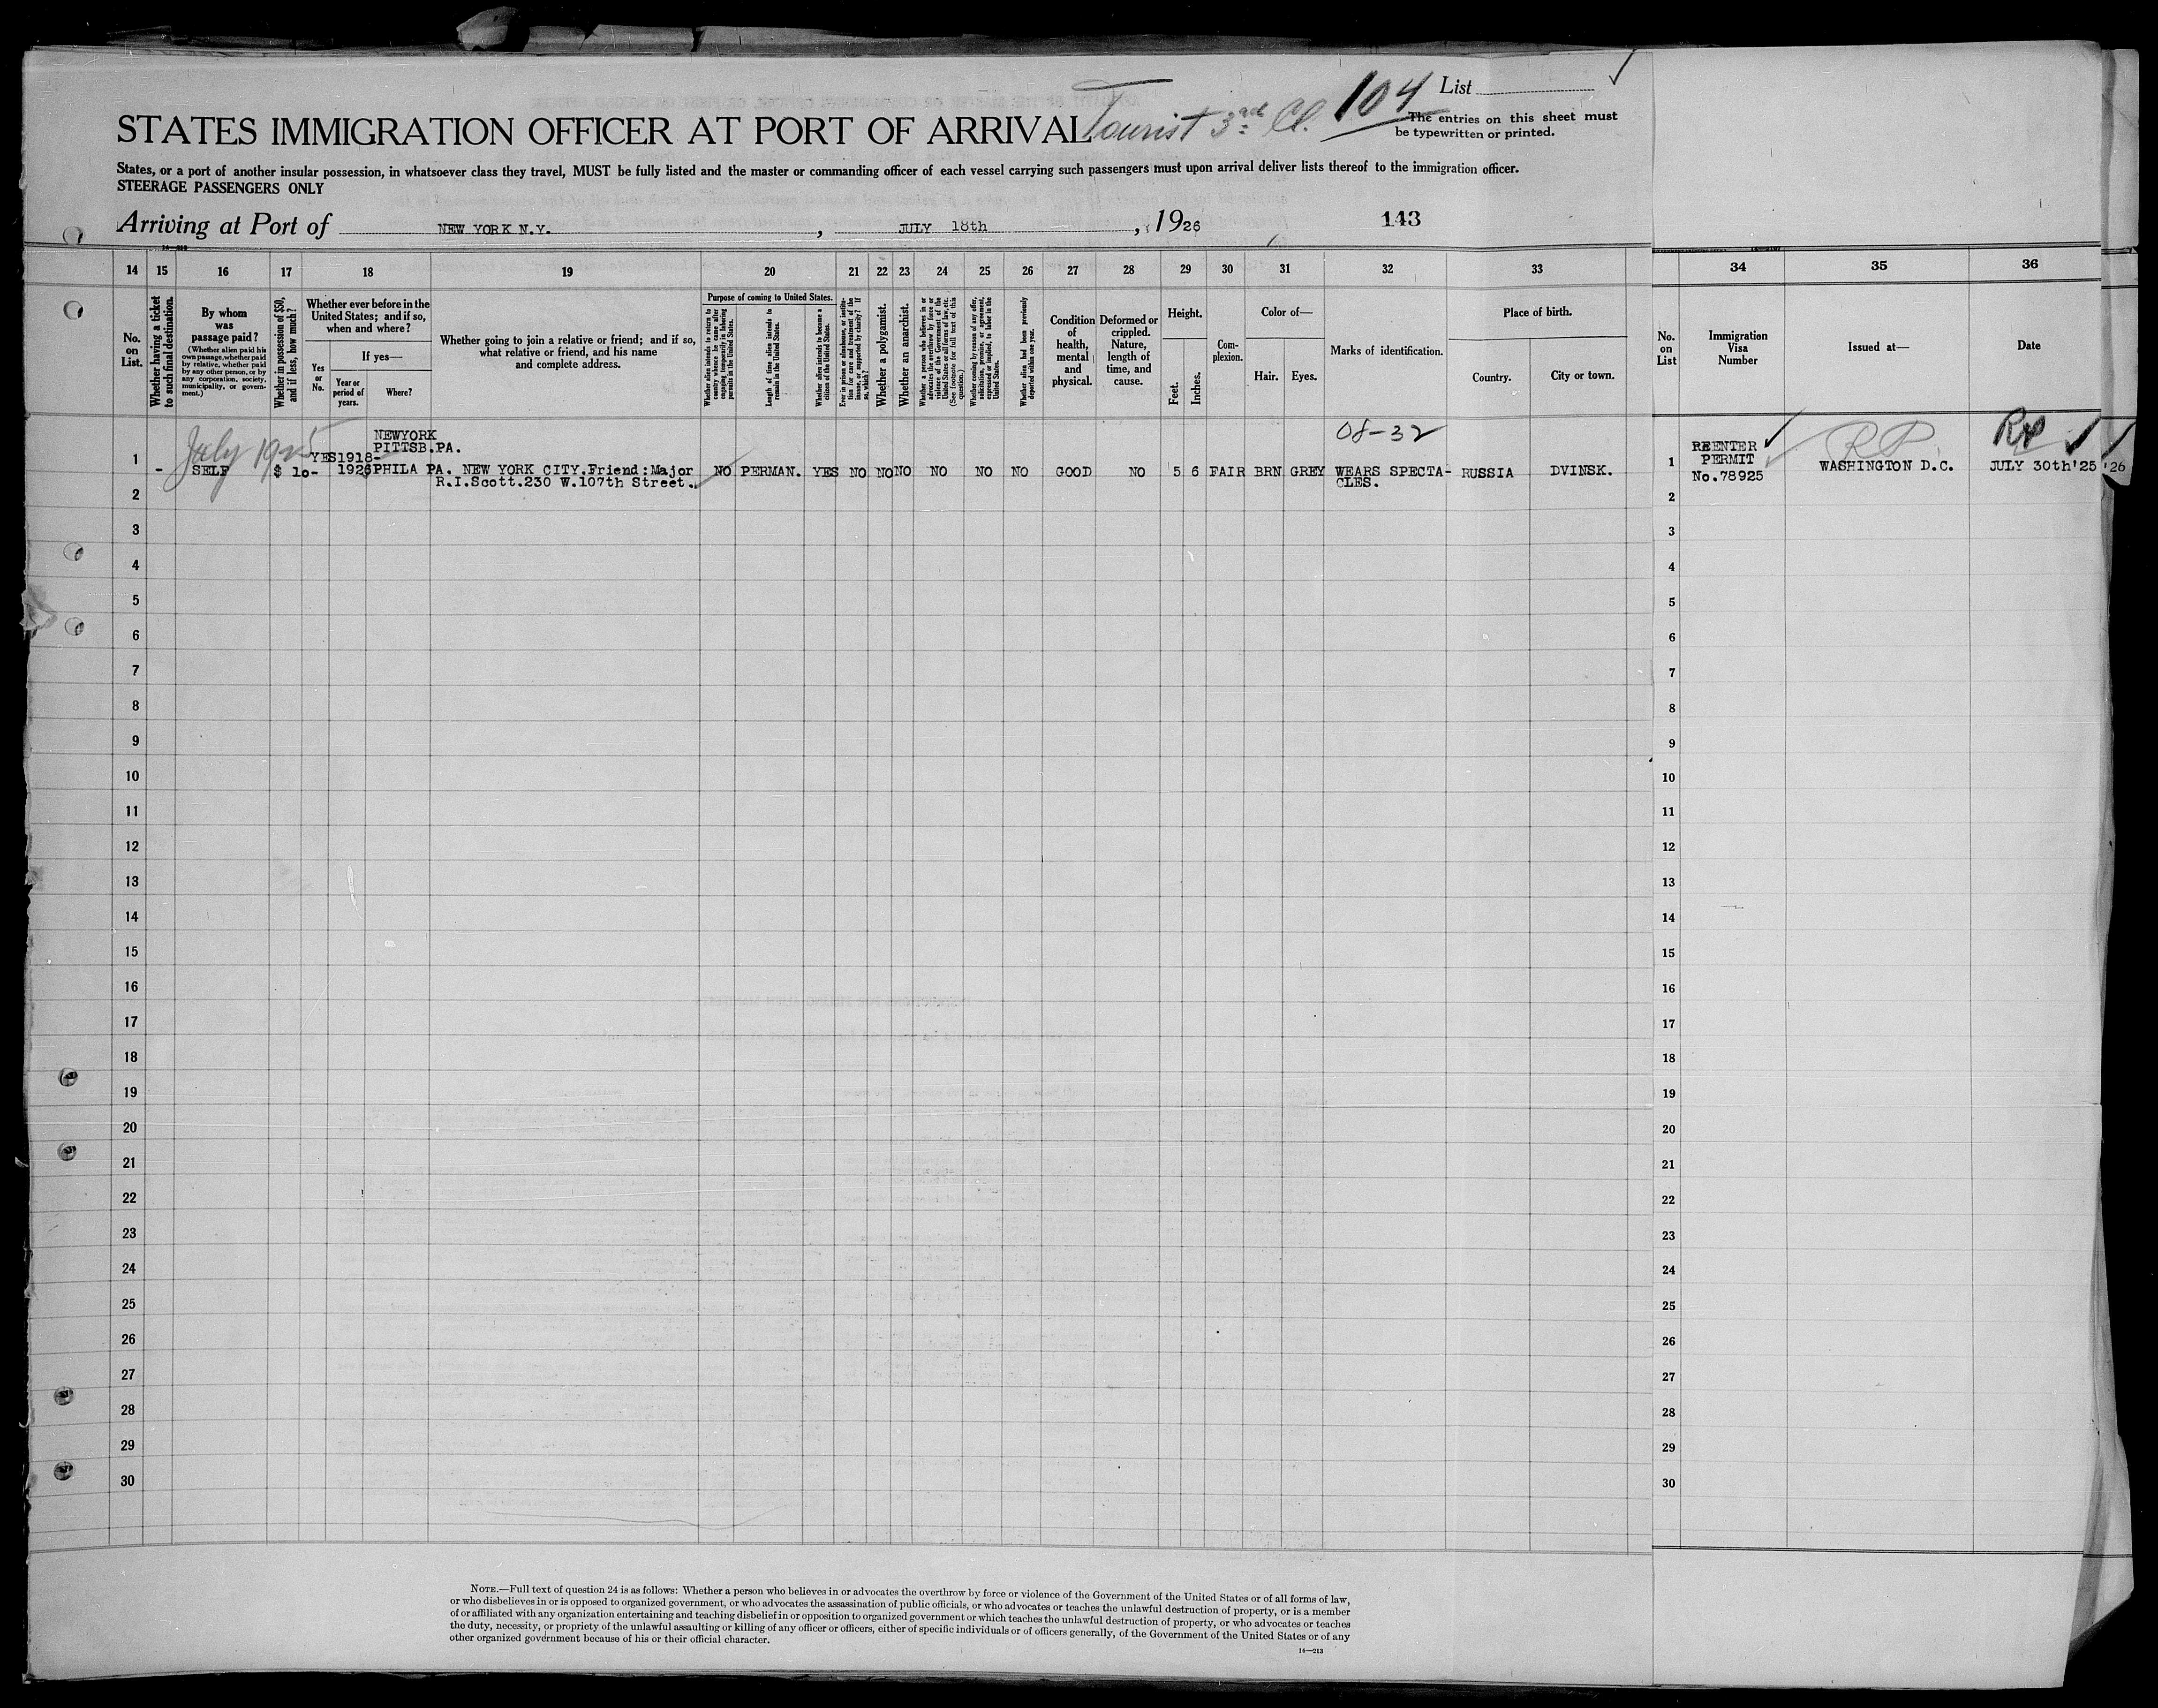 Tourist 3rd Cl. 104 List
STATES IMMIGRATION OFFICER AT PORT OF ARRIVAL
The entries on this sheet must
be typewritten or printed.
States, or a port of another insular possession, in whatsoever class they travel, MUST be fully listed and the master or commanding officer of each vessel carrying such passengers must upon arrival deliver lists thereof to the immigration officer.
STEERAGE PASSENGERS ONLY
Arriving at Port of NEW YORK N.Y. , JULY 18th , 1926 143
14 15 16 17 18 19 20 21 22 23 24 25 26 27 28 29 30 31 32 33 34 35 36
No.
on
List.
Whether having a ticket
to such final destination.
By whom
was
passage paid?
(Whether alien paid his
own passage, whether paid
by relative, whether paid
by any other person, or by
any corporation, society,
municipality, or govern-
ment.)
Whether in possession of $50,
and if less, how much?
Whether ever before in the
United States; and if so,
when and where?
Yes
or
No.
If yes—
Year or
period of
years.
Where?
Whether going to join a relative or friend; and if so,
what relative or friend, and his name
and complete address.
Purpose of coming to United States.
Whether alien intends to return to
country whence he came after
engaging temporarily in laboring
pursuits in the United States.
Length of time alien intends to
remain in the United States.
Whether alien intends to become a
citizen of the United States.
Ever in prison or almshouse, or institu-
tion for care and treatment of the
insane, or supported by charity? If
so, which?
Whether a polygamist.
Whether an anarchist.
Whether a person who believes in or
advocates the overthrow by force or
violence of the Government of the
United States or all forms of law, etc.
(See footnote for full text of this
question.)
Whether coming by reason of any offer,
solicitation, promise, or agreement,
expressed or implied, to labor in the
United States.
Whether alien had been previously
deported within one year.
Condition
of
health,
mental
and
physical.
Deformed or
crippled.
Nature,
length of
time, and
cause.
Height.
Feet.
Inches.
Com-
plexion.
Color of—
Hair.
Eyes.
Marks of identification.
Place of birth.
Country.
City or town.
No.
on
List
Immigration
Visa
Number
Issued at—
Date
July 1925
NEWYORK
PITTSB.PA.
08-32
REENTER
PERMIT
No.78925
RP
RP
1 - SELF $ 10- YES 1918-
1926 PHILA PA. NEW YORK CITY.Friend:Major
R.I.Scott.230 W.107th Street.
NO PERMAN. YES NO NO NO NO NO NO GOOD NO 5 6 FAIR BRN GREY WEARS SPECTA-
CLES.
RUSSIA DVINSK. 1 WASHINGTON D.C. JULY 30th'25 '26
2 2
3 3
4 4
5 5
6 6
7 7
8 8
9 9
10 10
11 11
12 12
13 13
14 14
15 15
16 16
17 17
18 18
19 19
20 20
21 21
22 22
23 23
24 24
25 25
26 26
27 27
28 28
29 29
30 30
NOTE.—Full text of question 24 is as follows: Whether a person who believes in or advocates the overthrow by force or violence of the Government of the United States or of all forms of law,
or who disbelieves in or is opposed to organized government, or who advocates the assassination of public officials, or who advocates or teaches the unlawful destruction of property, or is a member
of or affiliated with any organization entertaining and teaching disbelief in or opposition to organized government or which teaches the unlawful destruction of property, or who advocates or teaches
the duty, necessity, or propriety of the unlawful assaulting or killing of any officer or officers, either of specific individuals or of officers generally, of the Government of the United States or of any
other organized government because of his or their official character.
14—213